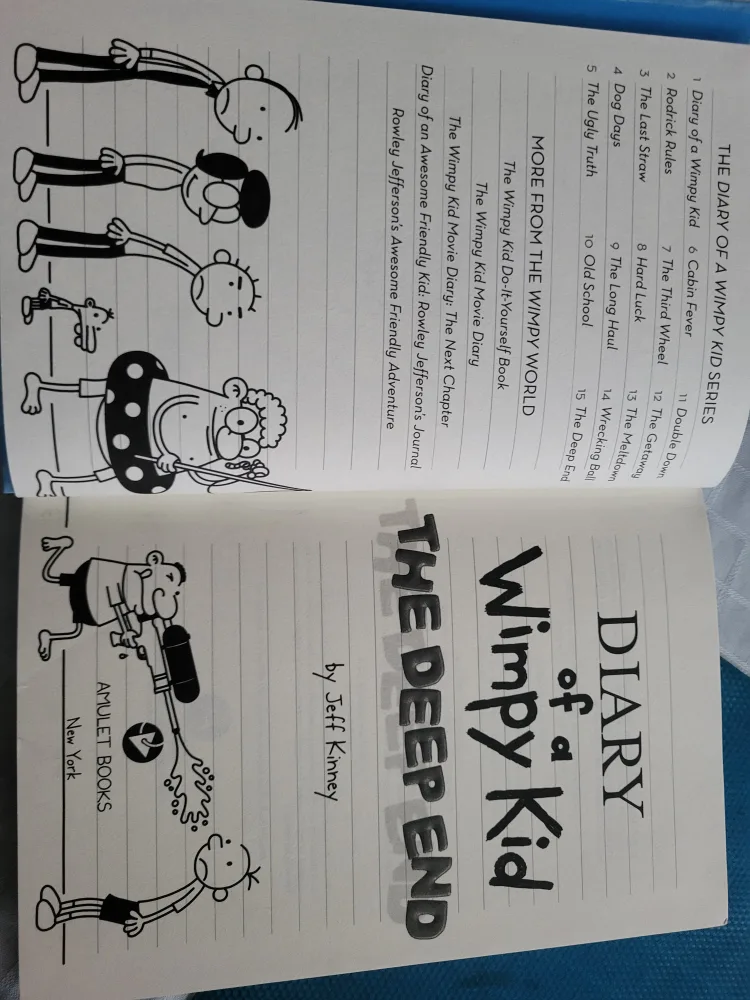 THE DIARY OF A WIMPY KID SERIES
1 Diary of a Wimpy Kid
2 Rodrick Rules
3 The Last Straw
4 Dog Days
5 The Ugly Truth
6 Cabin Fever
7 The Third Wheel
8 Hard Luck
9 The Long Haul
10 Old School
11 Double Down
12 The Getaway
13 The Meltdown
14 Wrecking Ball
15 The Deep End
MORE FROM THE WIMPY WORLD
The Wimpy Kid Do-It-Yourself Book
The Wimpy Kid Movie Diary
The Wimpy Kid Movie Diary: The Next Chapter
Diary of an Awesome Friendly Kid: Rowley Jefferson's Journal
Rowley Jefferson's Awesome Friendly Adventure
DIARY
of a
Wimpy Kid
THE DEEP END
by Jeff Kinney
AMULET BOOKS
New York